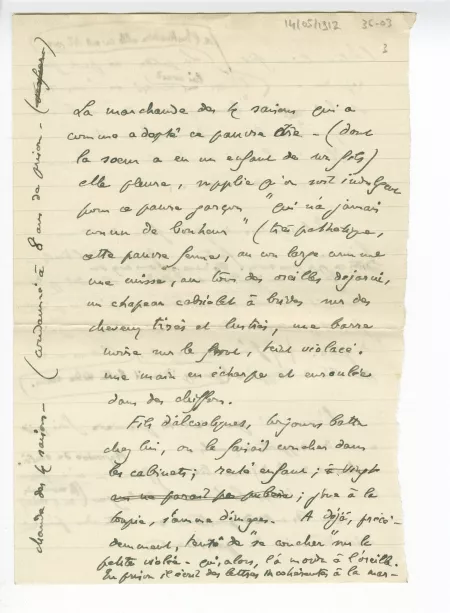 14/05/1912 36-03
3
La marchande des 4 saisons qui a
comme adopté ce pauvre être - (dont
la sœur a eu un enfant de un fols)
elle pleure, supplie qu'on soit indulgent
pour ce pauvre garçon "qui n'a jamais
connu de bonheur" (très pathétique,
cette pauvre femme, au cou large comme
une cuisse, au tour des oreilles dégarni,
un chapeau cabriolet à brides sur des
cheveux tirés et lustrés, une barre
noire sur le front, teint violacé.
une main en écharpe et enroulée
dans des chiffons.
Fils d'alcooliques, toujours battu
chez lui, on le faisait coucher dans
les cabinets; resté enfant; à vingt
ans ne paraît pas pubère; joue à la
toupie, s'amuse d'images. A déjà, précé-
demment, tenté de "se coucher" sur la
petite violée - qui, alors, l'a mordu à l'oreille.
En prison il écrit des lettres incohérentes à la mar-
chande des 4 saisons - (condamné à 8 ans de prison -